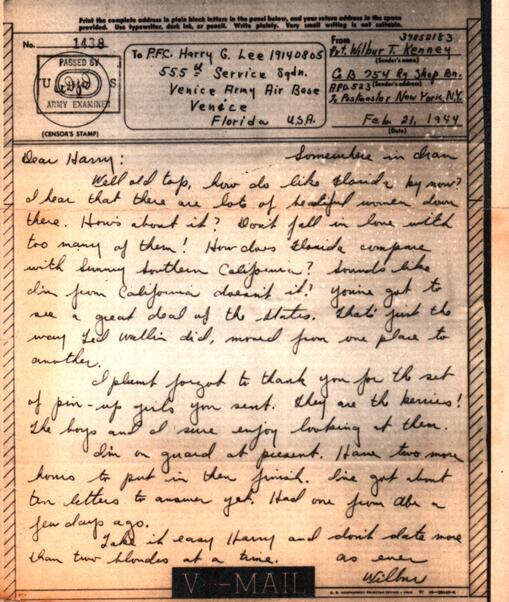 Print the complete address in plain block letters in the panel below, and your return address in the space
provided. Use typewriter, dark ink, or pencil. Write plainly. Very small writing is not suitable.
No. 1438
PASSED BY
U S
ARMY EXAMINER
(CENSOR'S STAMP)
To P.F.C. Harry G. Lee 19140805
555th Service Sqdn.
Venice Army Air Base
Venice
Florida U.S.A.
From 37052183
Pvt. Wilbur T. Kenney
(Sender's name)
Co B 754 Ry Shop Bn.
(Sender's address)
A.P.O. 523
% Postmaster New York, N.Y.
Feb 21, 1944
(Date)
Dear Harry: Somewhere in Iran
Well old top, how do like Florida by now?
I hear that there are lots of beautiful women down
there. How's about it? Don't fall in love with
too many of them! How does Florida compare
with Sunny Southern California? Sounds like
I'm from California doesn't it? You've got to
see a great deal of the states. That's just the
way Ted Wallin did, moved from one place to
another.
I plumt forgot to thank you for the set
of pin-up girls you sent. They are the berries!
The boys and I sure enjoy looking at them.
I'm on guard at present. Have two more
hours to put in then finish. I've got about
ten letters to answer yet. Had one from Abe a
few days ago.
Take it easy Harry and don't date more
than two blondes at a time. as ever
Wilbur
V-MAIL